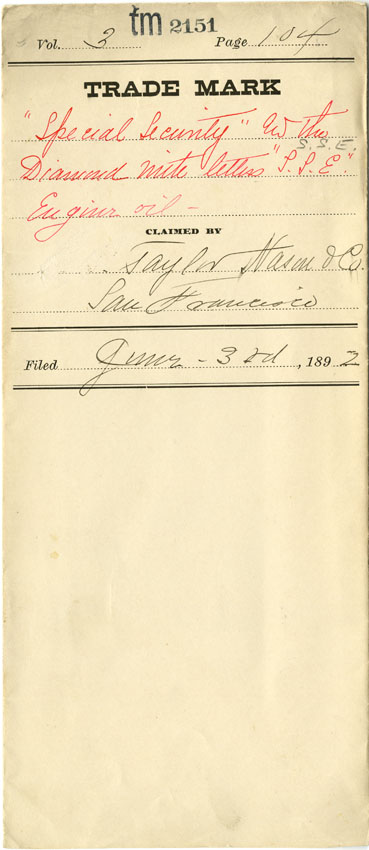 tm 2151
Vol. 3 Page 104
TRADE MARK
"Special Security" W the
S.S.E.
Diamond with letters "S.S.E".
Engine oil -
CLAIMED BY
Taylor Nason & Co.
San Francisco
Filed June - 3rd, 1892